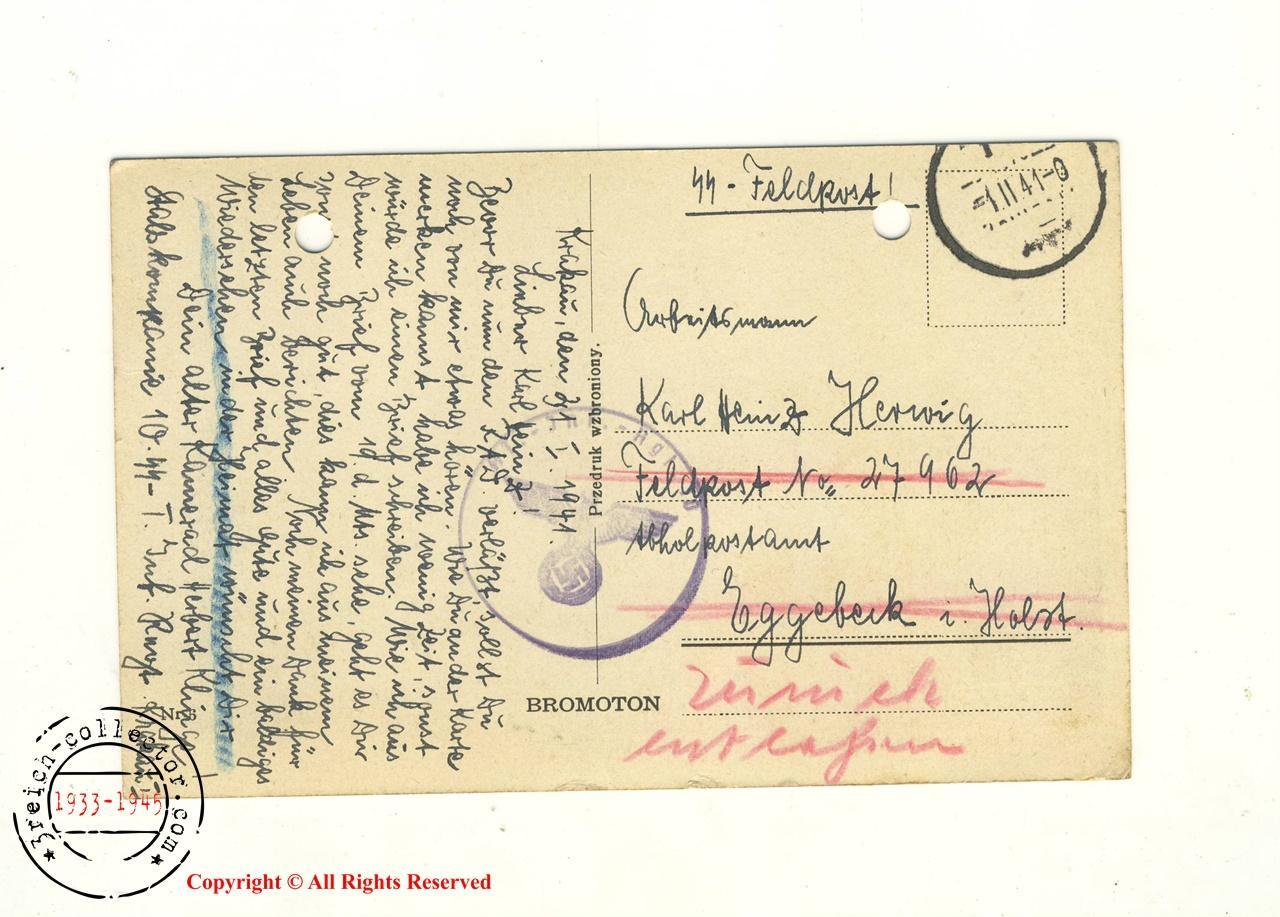 SS - Feldpost!
1.11.41-0
Arbeitsmann
Karl Heinz Herwig
Feldpost No. 27962
Abholpostamt
Eggebeck i. Holst.
zurück
entlassen
BROMOTON
Przedruk wzbroniony.
Krakau, den 31. I. 1941.
Lieber Karl Heinz!
Bevor Du nun den RAD. verläßt sollst Du
noch von mir etwas hören. Wie Du an der Karte
merken kannst habe ich wenig Zeit, sonst
würde ich einen Brief schreiben. Wie ich aus
Deinem Brief vom 1d. d. Mts. sehe geht es Dir
noch gut, dies kann ich aus meinem
Leben auch berichten. Noch meinen Dank für
den letzten Brief und alles Gute und ein baldiges
Wiedersehen in der Heimat wünscht Dir
Dein alter Kamerad Herbert
Stabskompanie 10. SS-T. Inf. Regt.
Nr.
3reich-collector.com
1933-1945
Copyright © All Rights Reserved